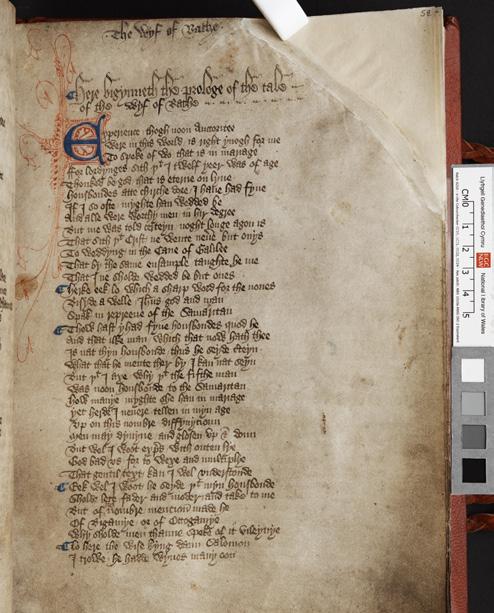 58
The Wyf of Bathe
Here bigynneth the prologe of the tale
of the Wyf of Bathe
Experience thogh noon Auctoritee
Were in this world is right ynogh for me
To speke of wo that is in mariage
For lordynges sith þt I twelf yeer was of age
Thonked be god that is eterne on lyue
housbondes atte chirche dore I haue had fyue
If I so ofte myghte han wedded be
And alle were worthy men in hir degree
But me was told certeyn noght longe agon is
That sith þt Crist ne wente neuere but onys
To weddyng in the Cane of Galilee
That by the same ensample taughte he me
That I ne sholde wedded be but ones
Herke eek lo which a sharp word for the nones
Bisyde a welle Ihus god and man
Spak in repreeue of the Samaritan
Thow hast yhad fyue housbondes quod he
And that ilke man which that now hath thee
Is nat thyn housbonde thus he seyde certeyn
What that he mente ther by I kan nat seyn
But þt I axe why þt the fifthe man
Was noon housbonde to the Samaritan
how manye myghte she han in mariage
Yet herde I neuere tellen in myn age
Vp on this nombre diffynycioun
Men may dyuyne and glosen vp & doun
But wel I woot expres with outen lye
God bad vs for to wexe and multiplye
That gentil text kan I wel vnderstonde
Eek wel I woot he seyde þt myn housbonde
Sholde lete fader and moder and take to me
But of no nombre mencion made he
Of Bigamye or of Octogamye
Why sholde men thanne speke of it vileynye
Lo here the wise kyng daun Salomon
I trowe he hadde wyues many oon
CM
0
1
2
3
4
5
Llyfrgell Genedlaethol Cymru
National Library of Wales